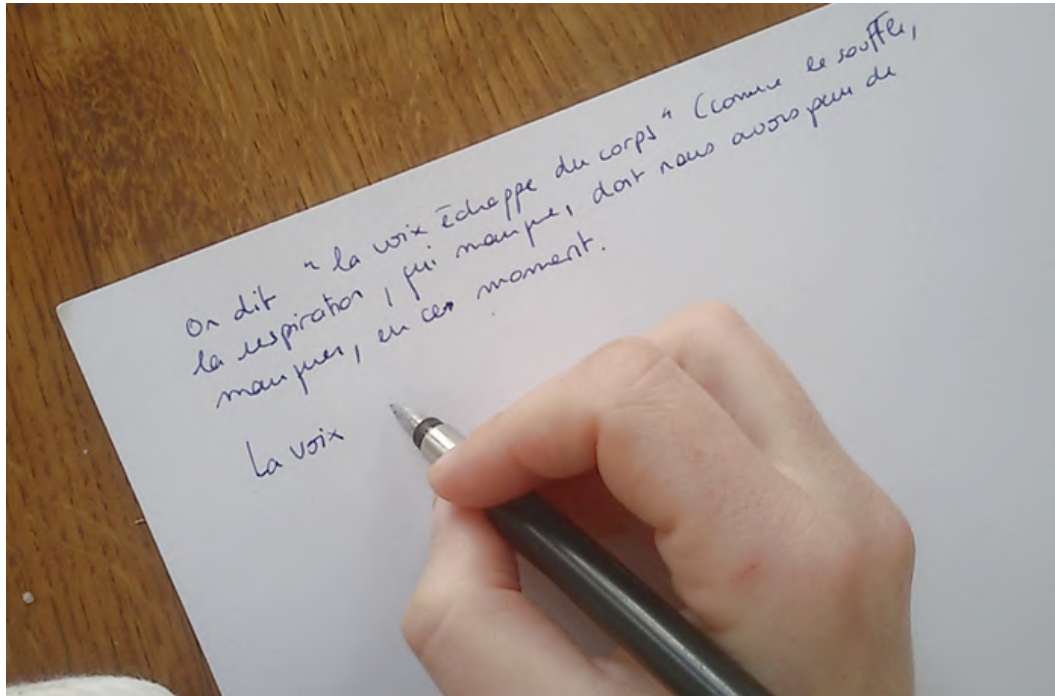 On dit "la voix échappe du corps" (comme le souffle,
la respiration, qui manque, dont nous avons peur de
manquer, en ce moment.
La voix